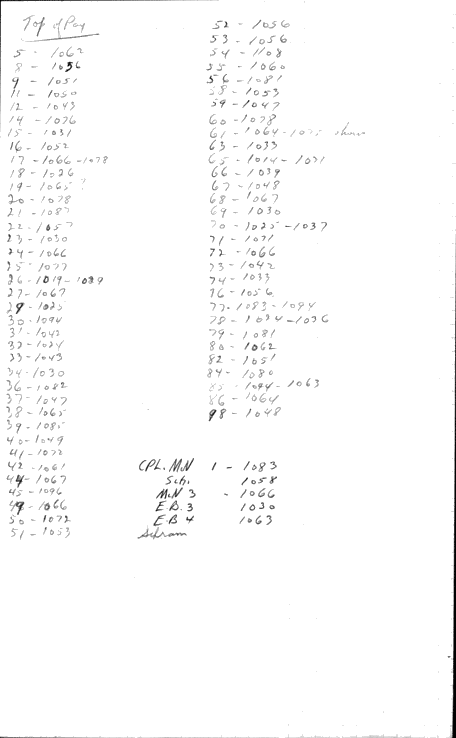 Top of Pay
5 - 1062
8 - 1056
9 - 1051
11 - 1050
12 - 1043
14 - 1076
15 - 1031
16 - 1052
17 - 1066 - 1078
18 - 1026
19 - 1065 ?
20 - 1078
21 - 1087
22 - 1057
23 - 1030
24 - 1066
25 - 1077
26 - 1019 - 1089
27 - 1067
29 - 1025
30 - 1094
31 - 1042
32 - 1024
33 - 1043
34 - 1030
36 - 1082
37 - 1047
38 - 1065
39 - 1085
40 - 1049
41 - 1072
42 - 1061
44 - 1067
45 - 1096
49 - 1066
50 - 1072
51 - 1053
52 - 1056
53 - 1056
54 - 1108
55 - 1060
56 - 1081
58 - 1053
59 - 1047
60 - 1078
61 - 1064 - 1075 show
63 - 1033
65 - 1014 - 1071
66 - 1039
67 - 1048
68 - 1067
69 - 1030
70 - 1025 - 1037
71 - 1071
72 - 1066
73 - 1042
74 - 1033
76 - 1056
77 - 1083 - 1094
78 - 1034 - 1036
79 - 1081
80 - 1062
82 - 1051
84 - 1080
85 - 1044 - 1063
86 - 1064
98 - 1048
CPL. M.N 1 - 1083
Sch. 1058
M.N 3 - 1066
E.B. 3 1030
E.B 4 1063
Schram